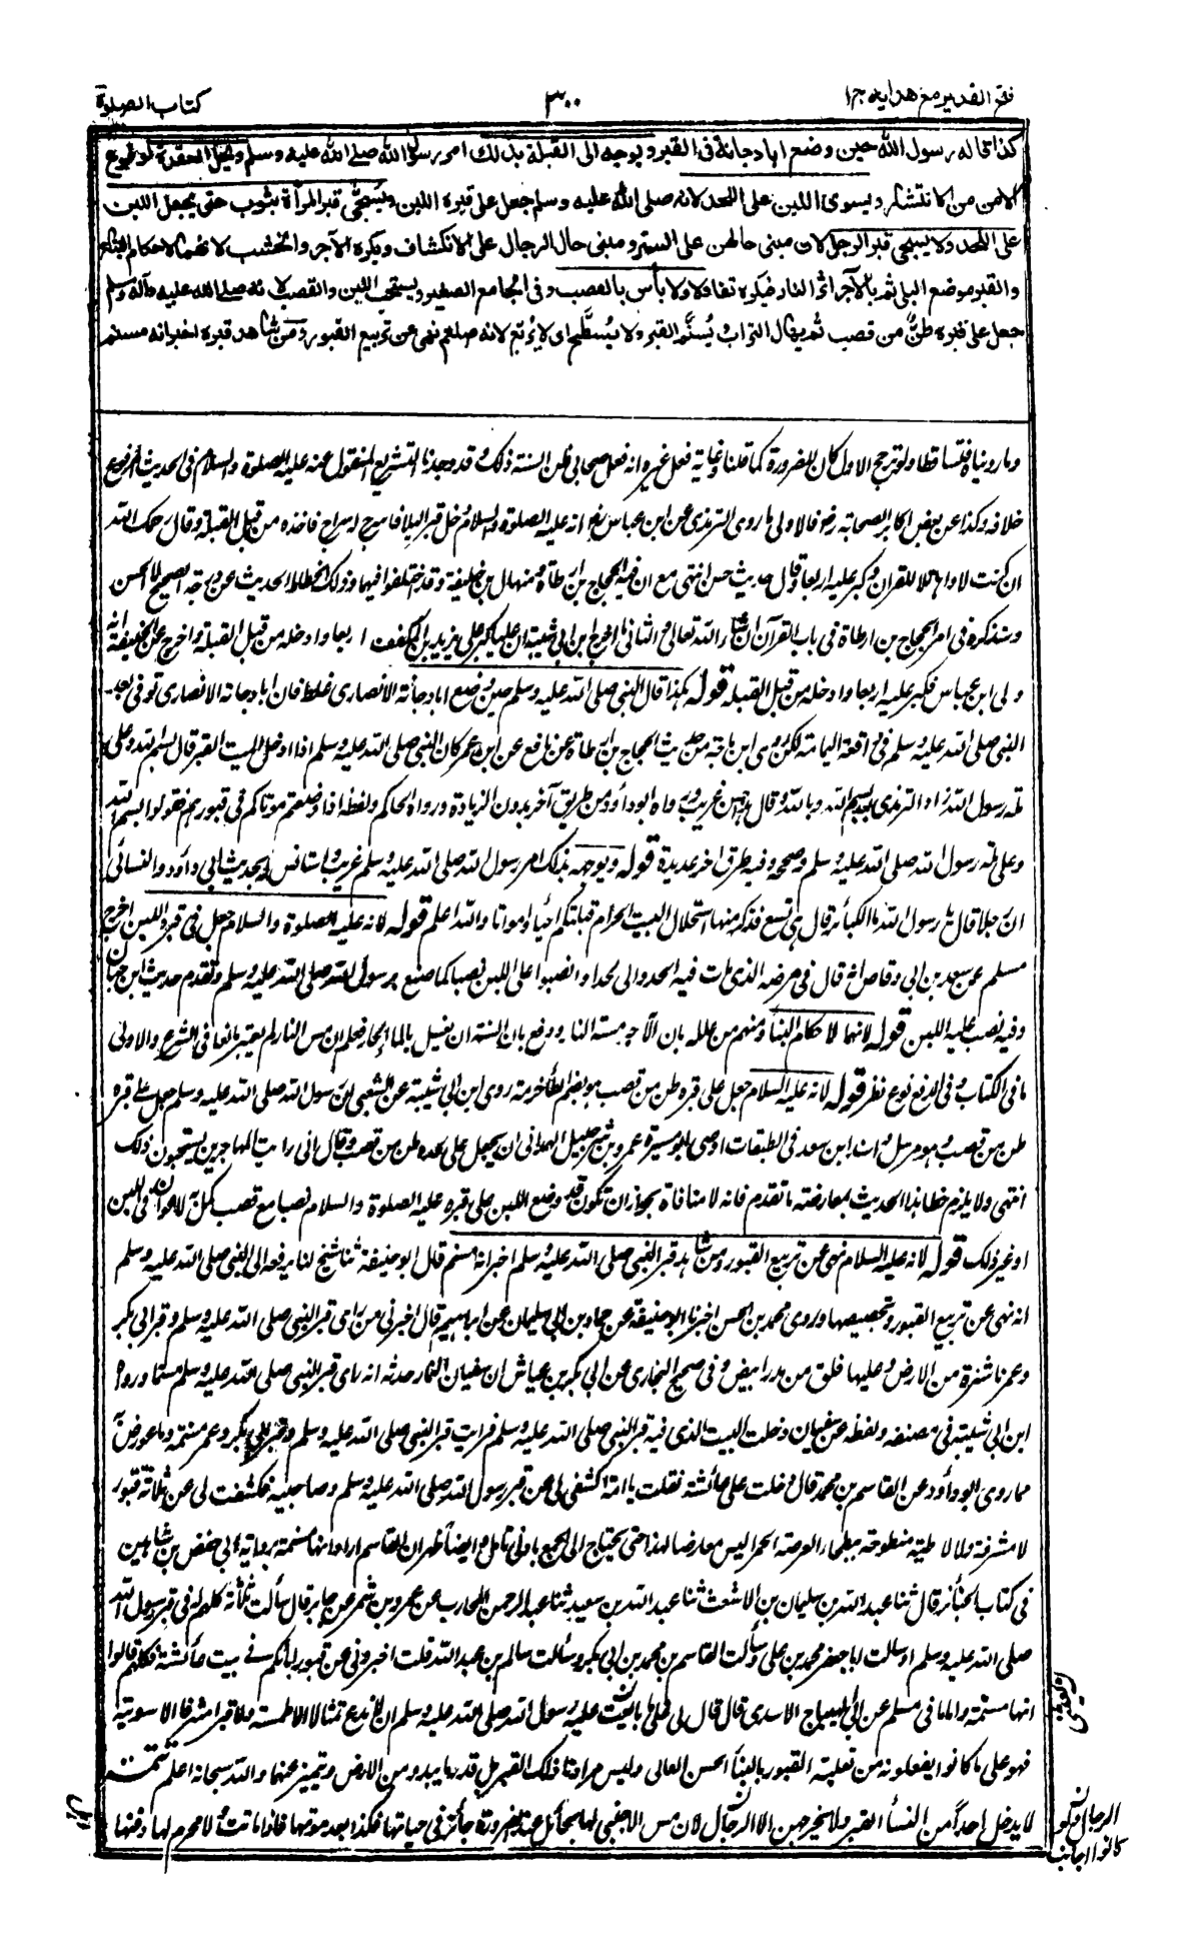 فتح القدير مع هدايه ج١
٣٠٠
كتاب الصلوة
كذا قاله رسول الله حين وضع ابا دجانة فى القبر ويوجه الى القبلة بذلك امر رسول الله صلے الله عليه وسلم ويحل العقدة لوقوع
الامن من الانتشار ويسوى اللبن على اللحد لانه صلى الله عليه وسلم جعل على قبره اللبن ويسجّى قبر المرأة بثوب حتى يجعل اللبن
على اللحد ولا يسجى قبر الرجل لان مبنى حالهن على الستر ومبنى حال الرجال على الانكشاف ويكره الآجر والخشب لانهما لاحكام البناء
والقبر موضع البلى ثم بالآجر اثر النار فيكره تفاولا ولا بأس بالقصب وفى الجامع الصغير ويستحب اللبن والقصب لانه صلے الله عليه وآله وسلم
جعل على قبره طنٌّ من قصب ثم يهال التراب ويُسنَّم القبر ولا يُسطَّح اى لا يُربّع لانه صلعم نهى عن تربيع القبور ومن شاهد قبره اخبر انه مسنم
وما رويناه فتساقطا ولو ترجح الاول كان للضرورة كما قلنا وغاية فعل غيره انه فعل صحابى ظن السنة ذلك وقد وجدنا التشريع المنقول عنه عليه الصلوة والسلام فى الحديث المرفوع
خلافه وكذا عن بعض اكابر الصحابة رضو فالاولى ما روى الترمذى عن ابن عباس رض انه عليه الصلوة والسلام دخل قبرا ليلا فاسرج له سراج فاخذه من قبل القبلة وقال رحمك الله
ان كنت لاواها تلاء للقرآن وكبر عليه اربعا وقال حديث حسن انتهى مع ان فيه الحجاج بن ارطاة ومنهال بن خليفة وقد اختلفوا فيهما وذلك يحط الحديث عن درجة الصحيح لا الحسن
وسنذكره فى امر الحجاج بن ارطاة فى باب القران ان شاء الله تعالى والثانى ما اخرج ابن ابى شيبة ان عليا كبر على يزيد بن المكفف اربعا وادخله من قبل القبلة واخرج عن ابن الحنفية انه
ولى ابن عباس فكبر عليه اربعا وادخله من قبل القبلة قوله هكذا قال النبى صلى الله عليه وسلم حين وضع ابا دجانة الانصارى غلط فان ابا دجانة الانصارى توفى بعد
النبى صلى الله عليه وسلم فى واقعة اليمامة لكن روى ابن ماجة من حديث الحجاج بن ارطاة عن نافع عن ابن عمر كان النبى صلى الله عليه وسلم اذا ادخل الميت القبر قال بسم الله وعلى
ملة رسول الله زاد الترمذى بعد بسم الله وبالله وقال حسن غريب ورواه ابو داود من طريق آخر بدون الزيادة ورواه الحاكم ولفظه اذا وضعتم موتاكم فى قبورهم فقولوا بسم الله
وعلى ملة رسول الله صلى الله عليه وسلم وصححه وفيه طرق اخر عديدة قوله ويوجه بذلك امر رسول الله صلى الله عليه وسلم غريب واستانس له بحديث ابى داود والنسائى
ان رجلا قال يا رسول الله ما الكبائر قال هى تسع فذكر منها استحلال البيت الحرام قبلتكم احياء وامواتا والله اعلم قوله لانه عليه الصلوة والسلام جعل فى قبره اللبن اخرج
مسلم عن سعد بن ابى وقاص انه قال فى مرضه الذى مات فيه الحدوا لى لحدا وانصبوا على اللبن نصبا كما صنع برسول الله صلى الله عليه وسلم وتقدم حديث ابن حبان
وفيه نصب عليه اللبن قوله لانهما لاحكام البناء ومنهم من علله بان الآجر مسته النار ودفع بان السنة ان يغسل بالماء الحار فعلم ان مس النار لم يعتبر مانعا فى الشرع والاولى
ما فى الكتاب وفى الدفع نوع نظر قوله لانه عليه السلام جعل على قبره طن من قصب هو بضم الطاء حزمة روى ابن ابى شيبة عن الشعبى ان رسول الله صلى الله عليه وسلم جعل على قبره
طن من قصب وهو مرسل واسند ابن سعد فى الطبقات اوصى ابو ميسرة عمرو بن شرحبيل الهمدانى ان يجعل على لحده طن من قصب وقال انى رايت المهاجرين يستحبون ذلك
انتهى ولا يلزم خطأ هذا الحديث بمعارضة ما تقدم فانه لا منافاة بجواز ان تكون قد وضع اللبن على قبره عليه الصلوة والسلام نصبا مع قصب كمل به لاعواز فى اللبن
او غير ذلك قوله لانه عليه السلام نهى عن تربيع القبور ومن شاهد قبر النبى صلى الله عليه وسلم اخبر انه مسنم قال ابو حنيفة ثنا شيخ لنا يرفعه الى النبى صلى الله عليه وسلم
انه نهى عن تربيع القبور وتجصيصها وروى محمد بن الحسن اخبرنا ابو حنيفة عن حماد بن ابى سليمان عن ابراهيم قال اخبرنى من راى قبر النبى صلى الله عليه وسلم وقبر ابى بكر
وعمر ناشزة من الارض وعليها فلق من مدر ابيض وفى صحيح البخارى عن ابى بكر بن عياش ان سفيان التمار حدثه انه راى قبر النبى صلى الله عليه وسلم مسنما ورواه
ابن ابى شيبة فى مصنفه ولفظه عن سفيان دخلت البيت الذى فيه قبر النبى صلى الله عليه وسلم فرايت قبر النبى صلى الله عليه وسلم وقبر ابى بكر وعمر مسنمة وما عورض به
مما روى ابو داود عن القاسم بن محمد قال دخلت على عائشة فقلت يا امه اكشفى لى عن قبر رسول الله صلى الله عليه وسلم وصاحبيه فكشفت لى عن ثلاثة قبور
لا مشرفة ولا لاطية مبطوحة ببطحاء العرصة الحمراء ليس معارضا لهذا حتى يحتاج الى الجمع بادنى تامل وايضا ظهر ان القاسم اراد انها مسنمة برواية ابى حفص بن شاهين
فى كتاب الجنائز قال ثنا عبد الله بن سليمان بن الاشعث ثنا عبد الله بن سعيد ثنا عبد الرحمن المحاربى عن عمرو بن شمر عن جابر قال سألت ثلاثة كلهم له فى قبر رسول الله
صلى الله عليه وسلم اب سالت ابا جعفر محمد بن على وسألت القاسم بن محمد بن ابى بكر وسالت سالم بن عبد الله قلت اخبرونى عن قبور آبائكم فى بيت عائشة فكلهم قالوا
انها مسنمة واما ما فى مسلم عن ابى الهياج الاسدى قال قال لى على ابعثك على ما بعثنى عليه رسول الله صلى الله عليه وسلم ان لا تدع تمثالا الا طمسته ولا قبرا مشرفا الا سويته
فهو على ما كانوا يفعلونه من تعلية القبور بالبناء الحسن العالى وليس مرادنا ذلك القبر بل قدر ما يبدو من الارض ويتميز عنها والله سبحانه اعلم تتمة
لا يدخل احدا من النساء القبر ولا يخرجهن الا الرجال لان مس الاجنبى لها بحائل عند الضرورة جائز فى حياتها فكذا بعد موتها فاذا ماتت ولا محرم لها دفنها
الرجال
كانوا اجانب